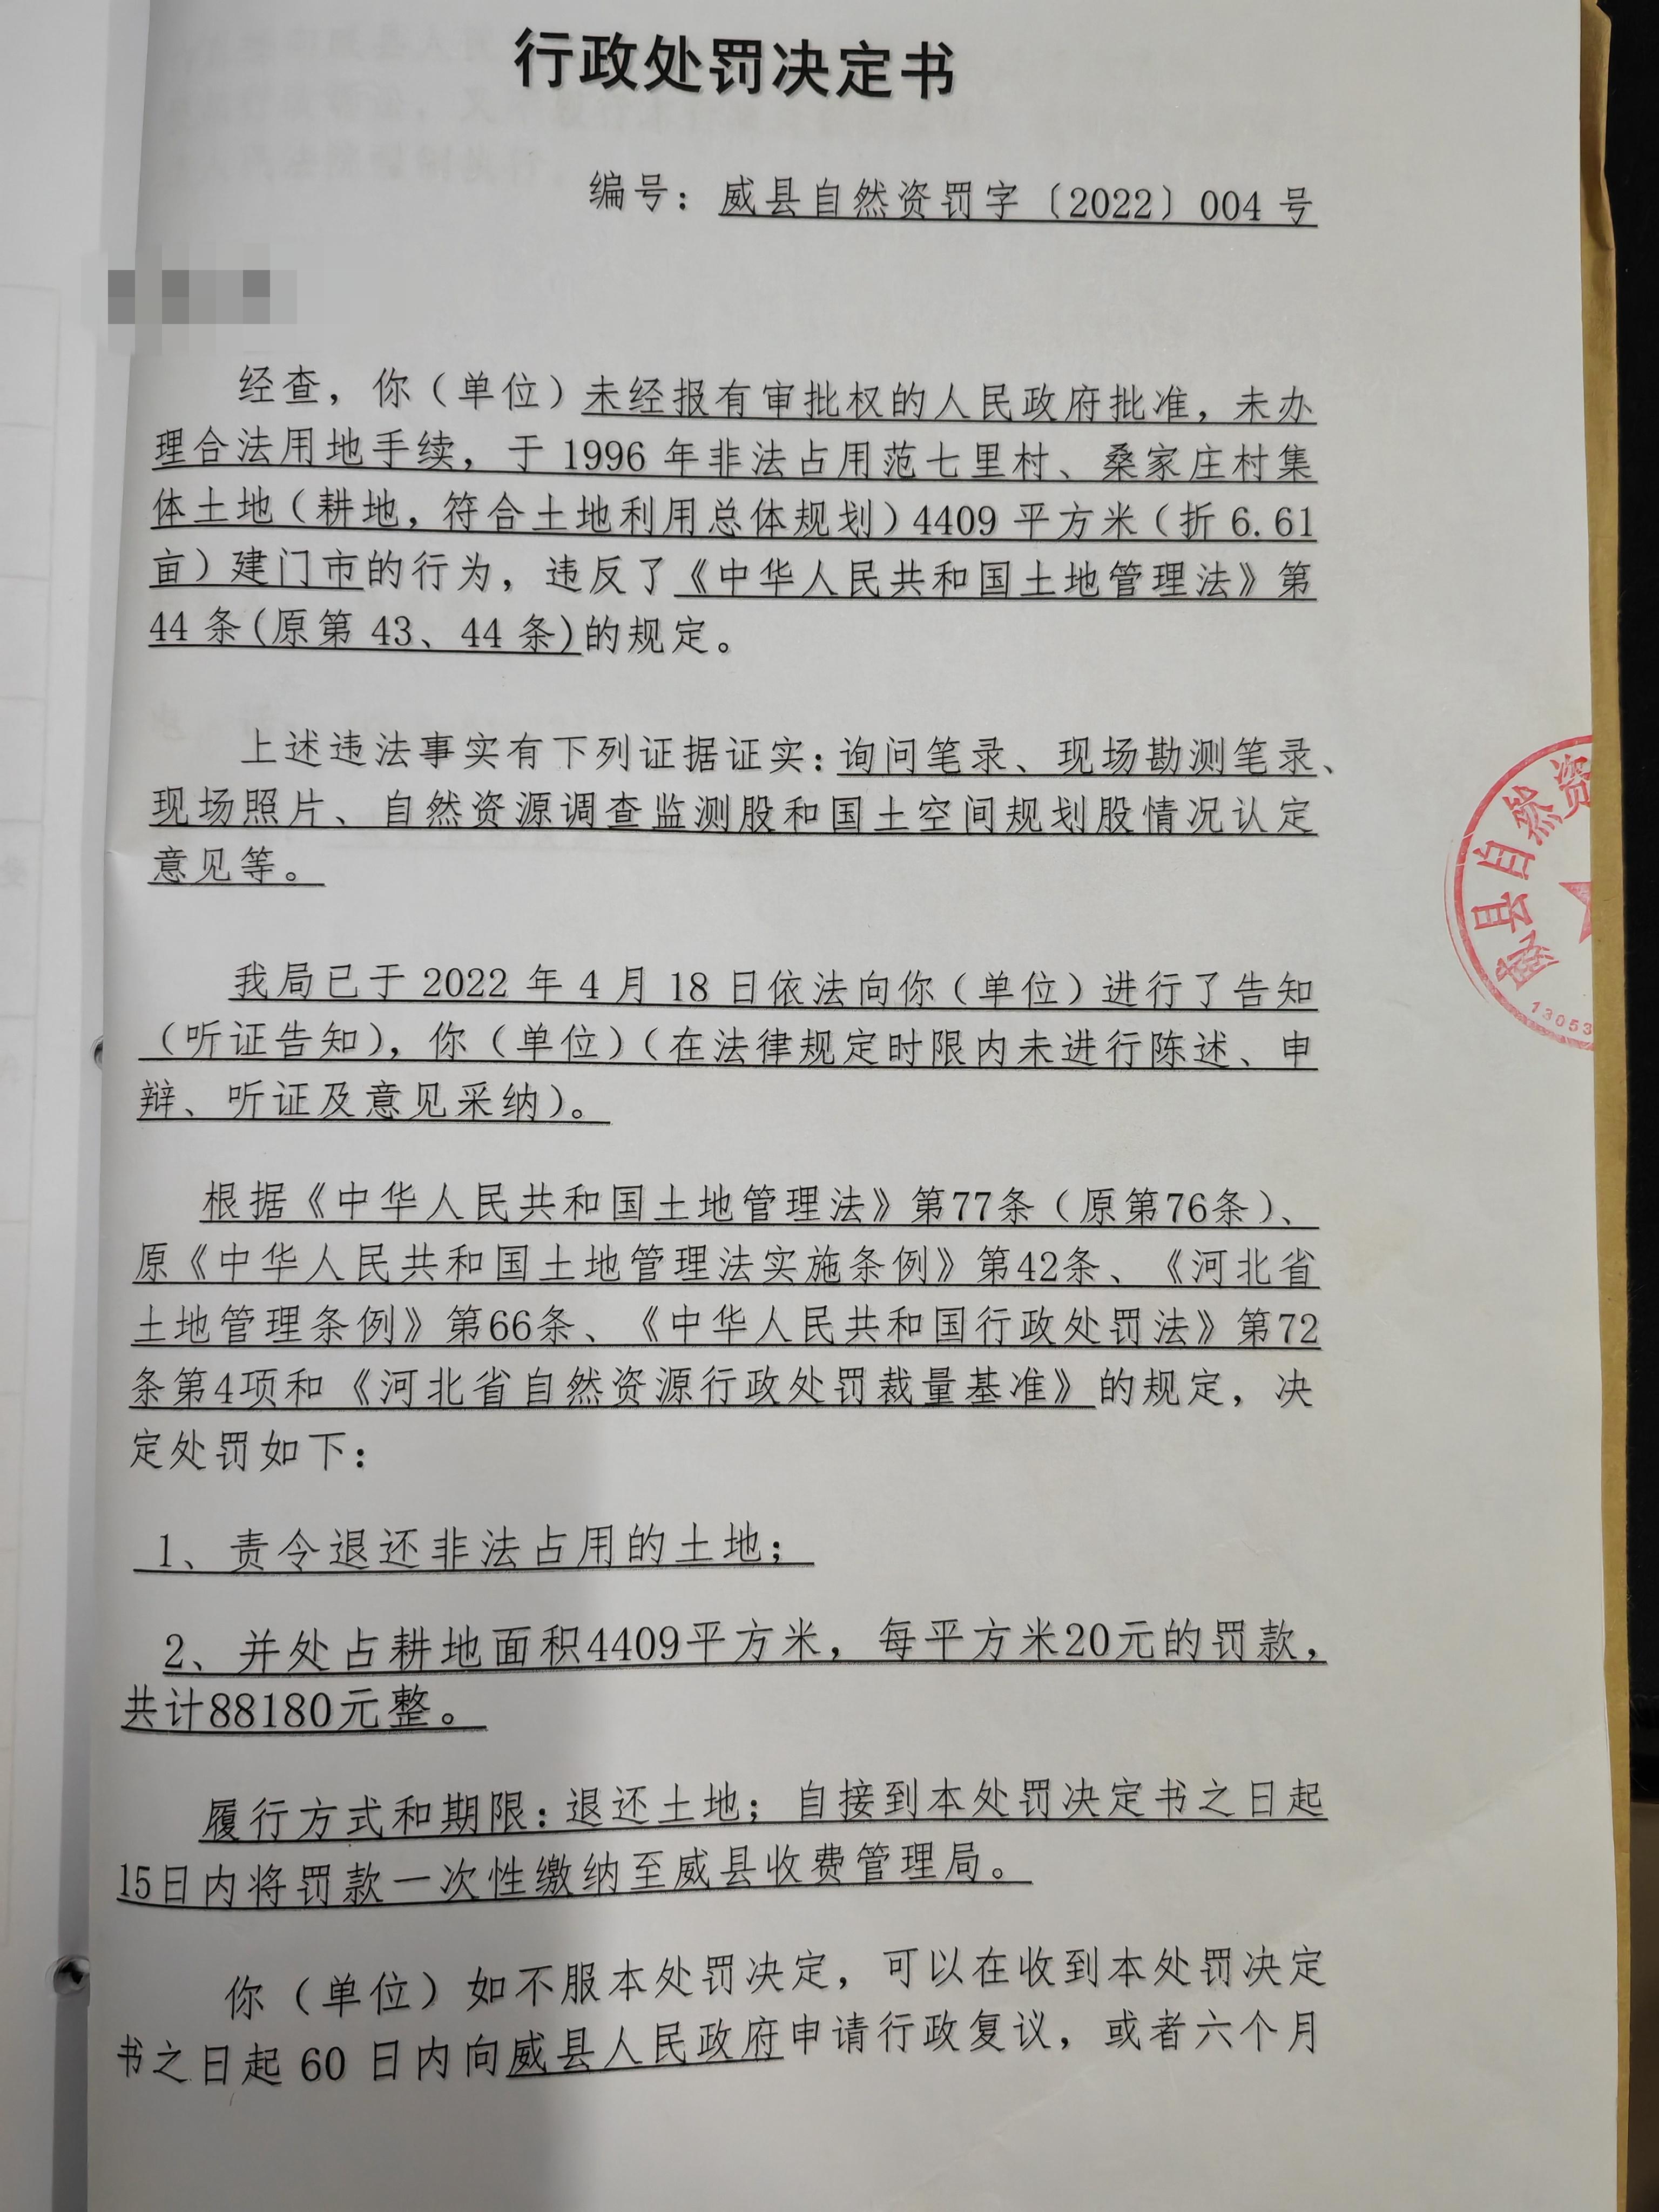 行政处罚决定书
编号：威县自然资罚字〔2022〕004号
经查，你（单位）未经报有审批权的人民政府批准，未办
理合法用地手续，于1996年非法占用范七里村、桑家庄村集
体土地（耕地，符合土地利用总体规划）4409平方米（折6.61
亩）建门市的行为，违反了《中华人民共和国土地管理法》第
44条(原第43、44条)的规定。
上述违法事实有下列证据证实：询问笔录、现场勘测笔录、
现场照片、自然资源调查监测股和国土空间规划股情况认定
意见等。
我局已于2022年4月18日依法向你（单位）进行了告知
（听证告知），你（单位）（在法律规定时限内未进行陈述、申
辩、听证及意见采纳）。
根据《中华人民共和国土地管理法》第77条（原第76条）、
原《中华人民共和国土地管理法实施条例》第42条、《河北省
土地管理条例》第66条、《中华人民共和国行政处罚法》第72
条第4项和《河北省自然资源行政处罚裁量基准》的规定，决
定处罚如下：
1、责令退还非法占用的土地；
2、并处占耕地面积4409平方米，每平方米20元的罚款，
共计88180元整。
履行方式和期限：退还土地；自接到本处罚决定书之日起
15日内将罚款一次性缴纳至威县收费管理局。
你（单位）如不服本处罚决定，可以在收到本处罚决定
书之日起60日内向威县人民政府申请行政复议，或者六个月
威县自然资
13053